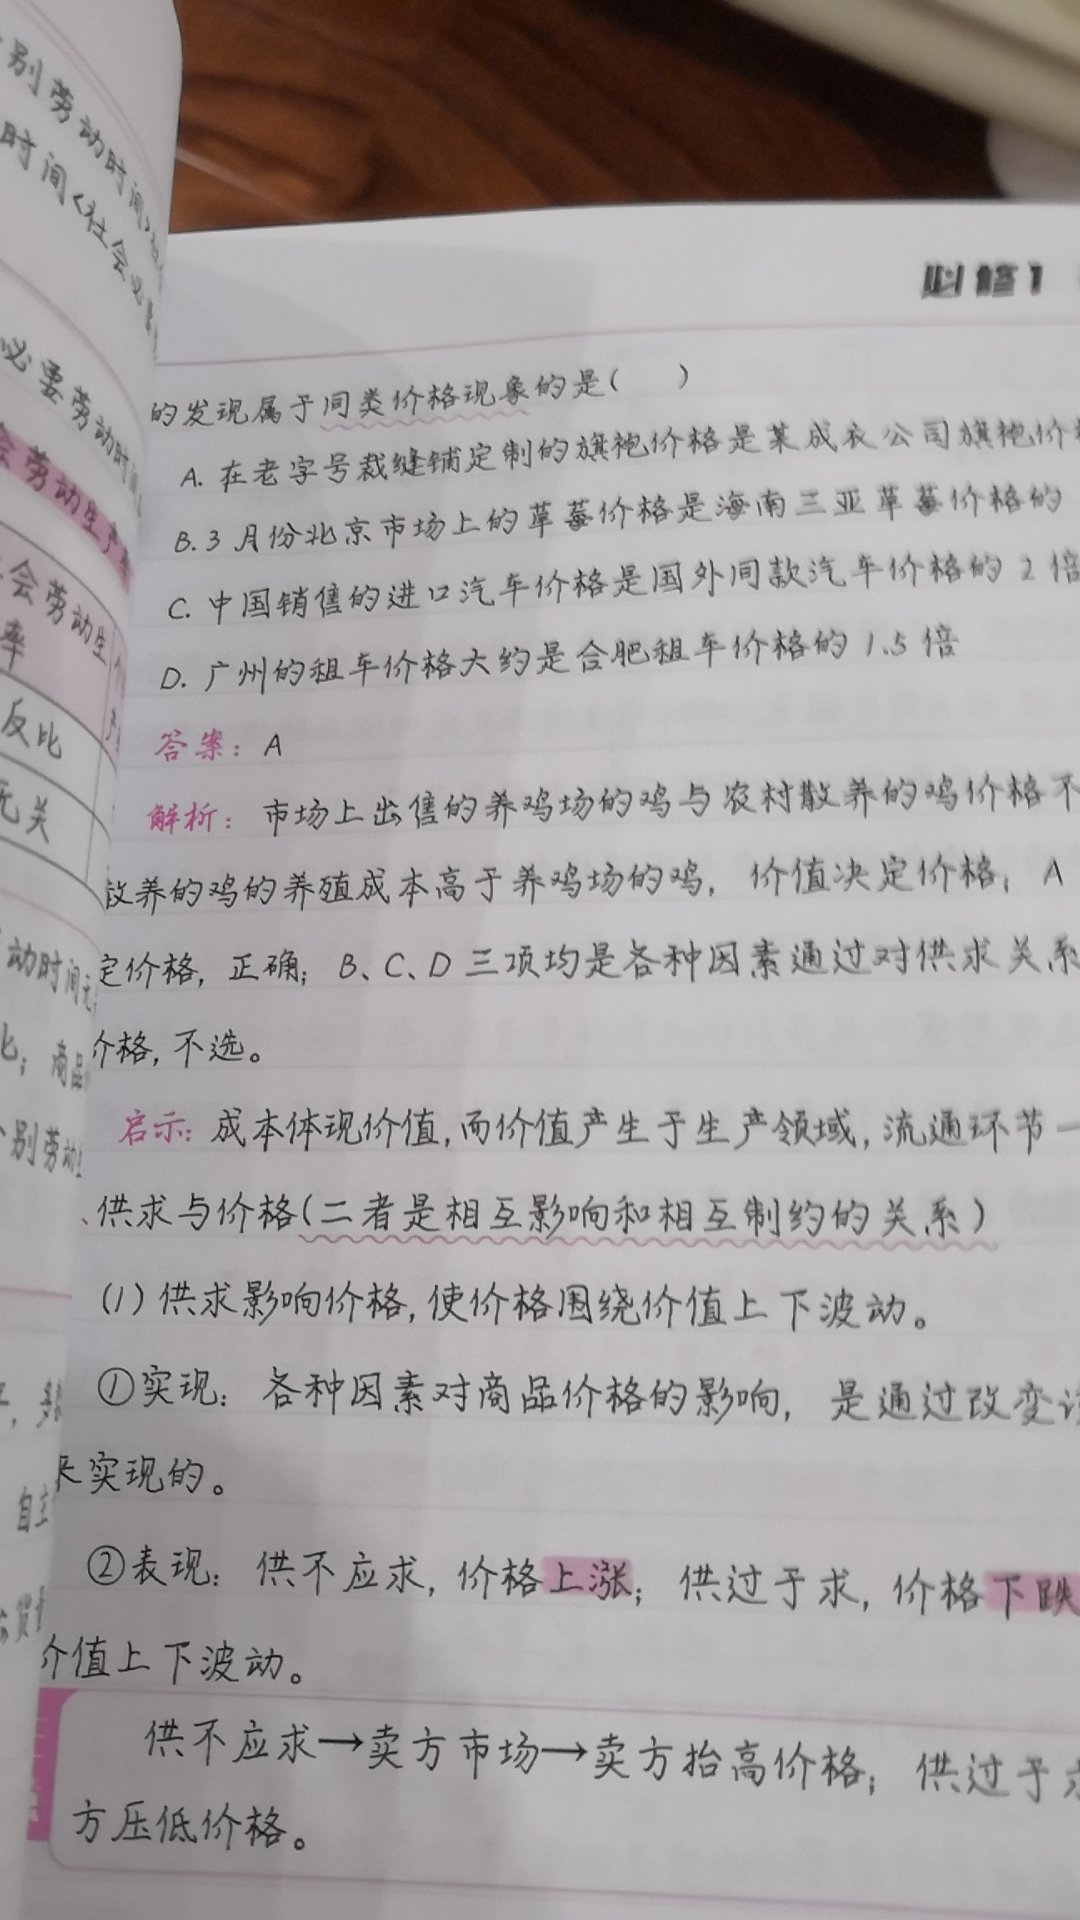 别劳动时间>社
时间<社会必
必要劳动时间
会劳动生产率
会劳动生
率
反比
无关
动时间无
比；商品
个别劳动
自主
必修1
的发现属于同类价格现象的是(  )
A. 在老字号裁缝铺定制的旗袍价格是某成衣公司旗袍价
B. 3月份北京市场上的草莓价格是海南三亚草莓价格的
C. 中国销售的进口汽车价格是国外同款汽车价格的2倍
D. 广州的租车价格大约是合肥租车价格的1.5倍
答案：A
解析：市场上出售的养鸡场的鸡与农村散养的鸡价格不
养的鸡的养殖成本高于养鸡场的鸡，价值决定价格；A
定价格，正确；B、C、D三项均是各种因素通过对供求关系
价格，不选。
启示：成本体现价值，而价值产生于生产领域，流通环节一
、供求与价格(二者是相互影响和相互制约的关系)
(1)供求影响价格，使价格围绕价值上下波动。
①实现：各种因素对商品价格的影响，是通过改变
来实现的。
②表现：供不应求，价格上涨；供过于求，价格下跌
价值上下波动。
供不应求→卖方市场→卖方抬高价格；供过于
方压低价格。